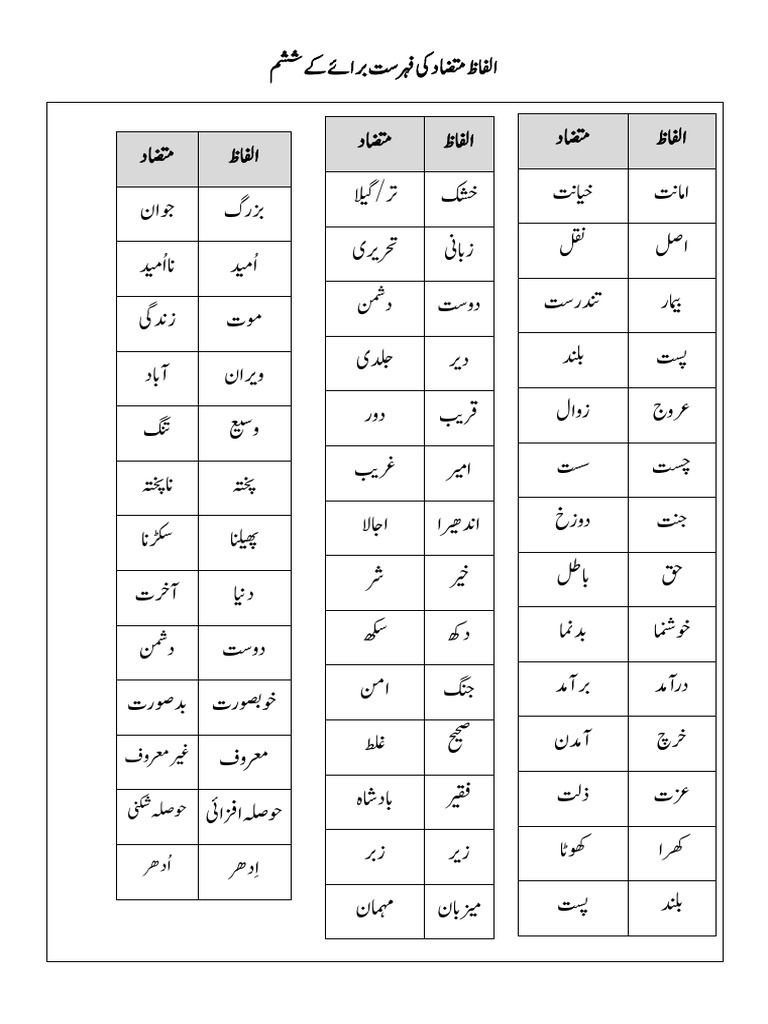 الفاظ متضاد کی فہرست برائے کے ششم
الفاظ متضاد
امانت خیانت
اصل نقل
بیمار تندرست
پست بلند
عروج زوال
چست سست
جنت دوزخ
حق باطل
خوشنما بدنما
درآمد برآمد
خرچ آمدن
عزت ذلت
کھرا کھوٹا
بلند پست
الفاظ متضاد
خشک تر/گیلا
زبانی تحریری
دوست دشمن
دیر جلدی
قریب دور
امیر غریب
اندھیرا اجالا
خیر شر
دکھ سکھ
جنگ امن
صحیح غلط
فقیر بادشاہ
زیر زبر
میزبان مہمان
الفاظ متضاد
بزرگ جوان
اُمید نااُمید
موت زندگی
ویران آباد
وسیع تنگ
پختہ ناپختہ
پھیلنا سکڑنا
دنیا آخرت
دوست دشمن
خوبصورت بدصورت
معروف غیر معروف
حوصلہ افزائی حوصلہ شکنی
اِدھر اُدھر